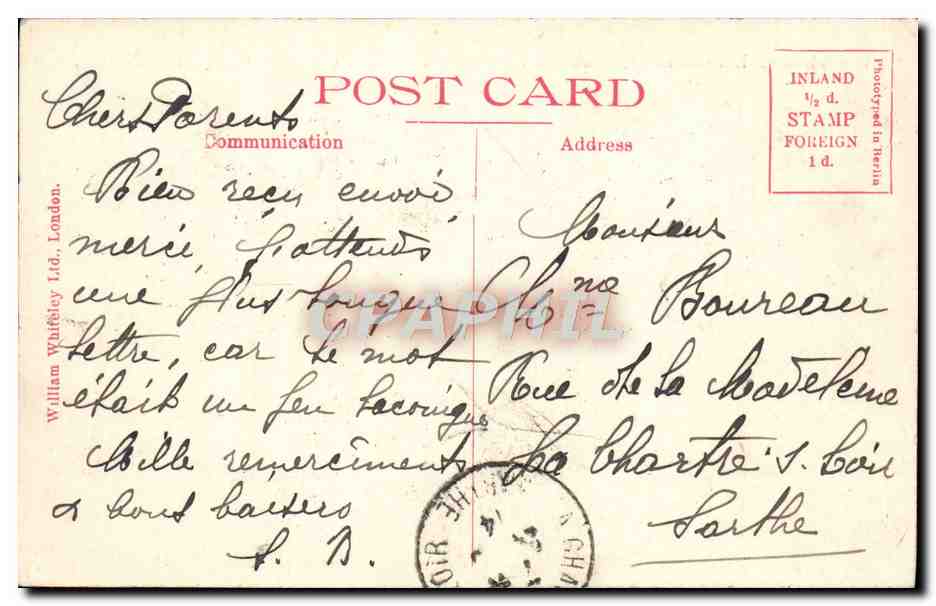 POST CARD
Communication
Address
INLAND
1/2 d.
STAMP
FOREIGN
1 d.
Phototyped in Berlin
William Whiteley Ltd., London.
Chers Parents
Bien reçu envoi
merci, j'attends
une plus longue
lettre, car le mot
était un peu laconique
Mille remerciments
& bons baisers
S. B.
Monsieur
&
Mme Boureau
Rue de la Madeleine
La Chartre s. Loir
Sarthe
CPAPHIL
LA CHA
OIR
SARTHE